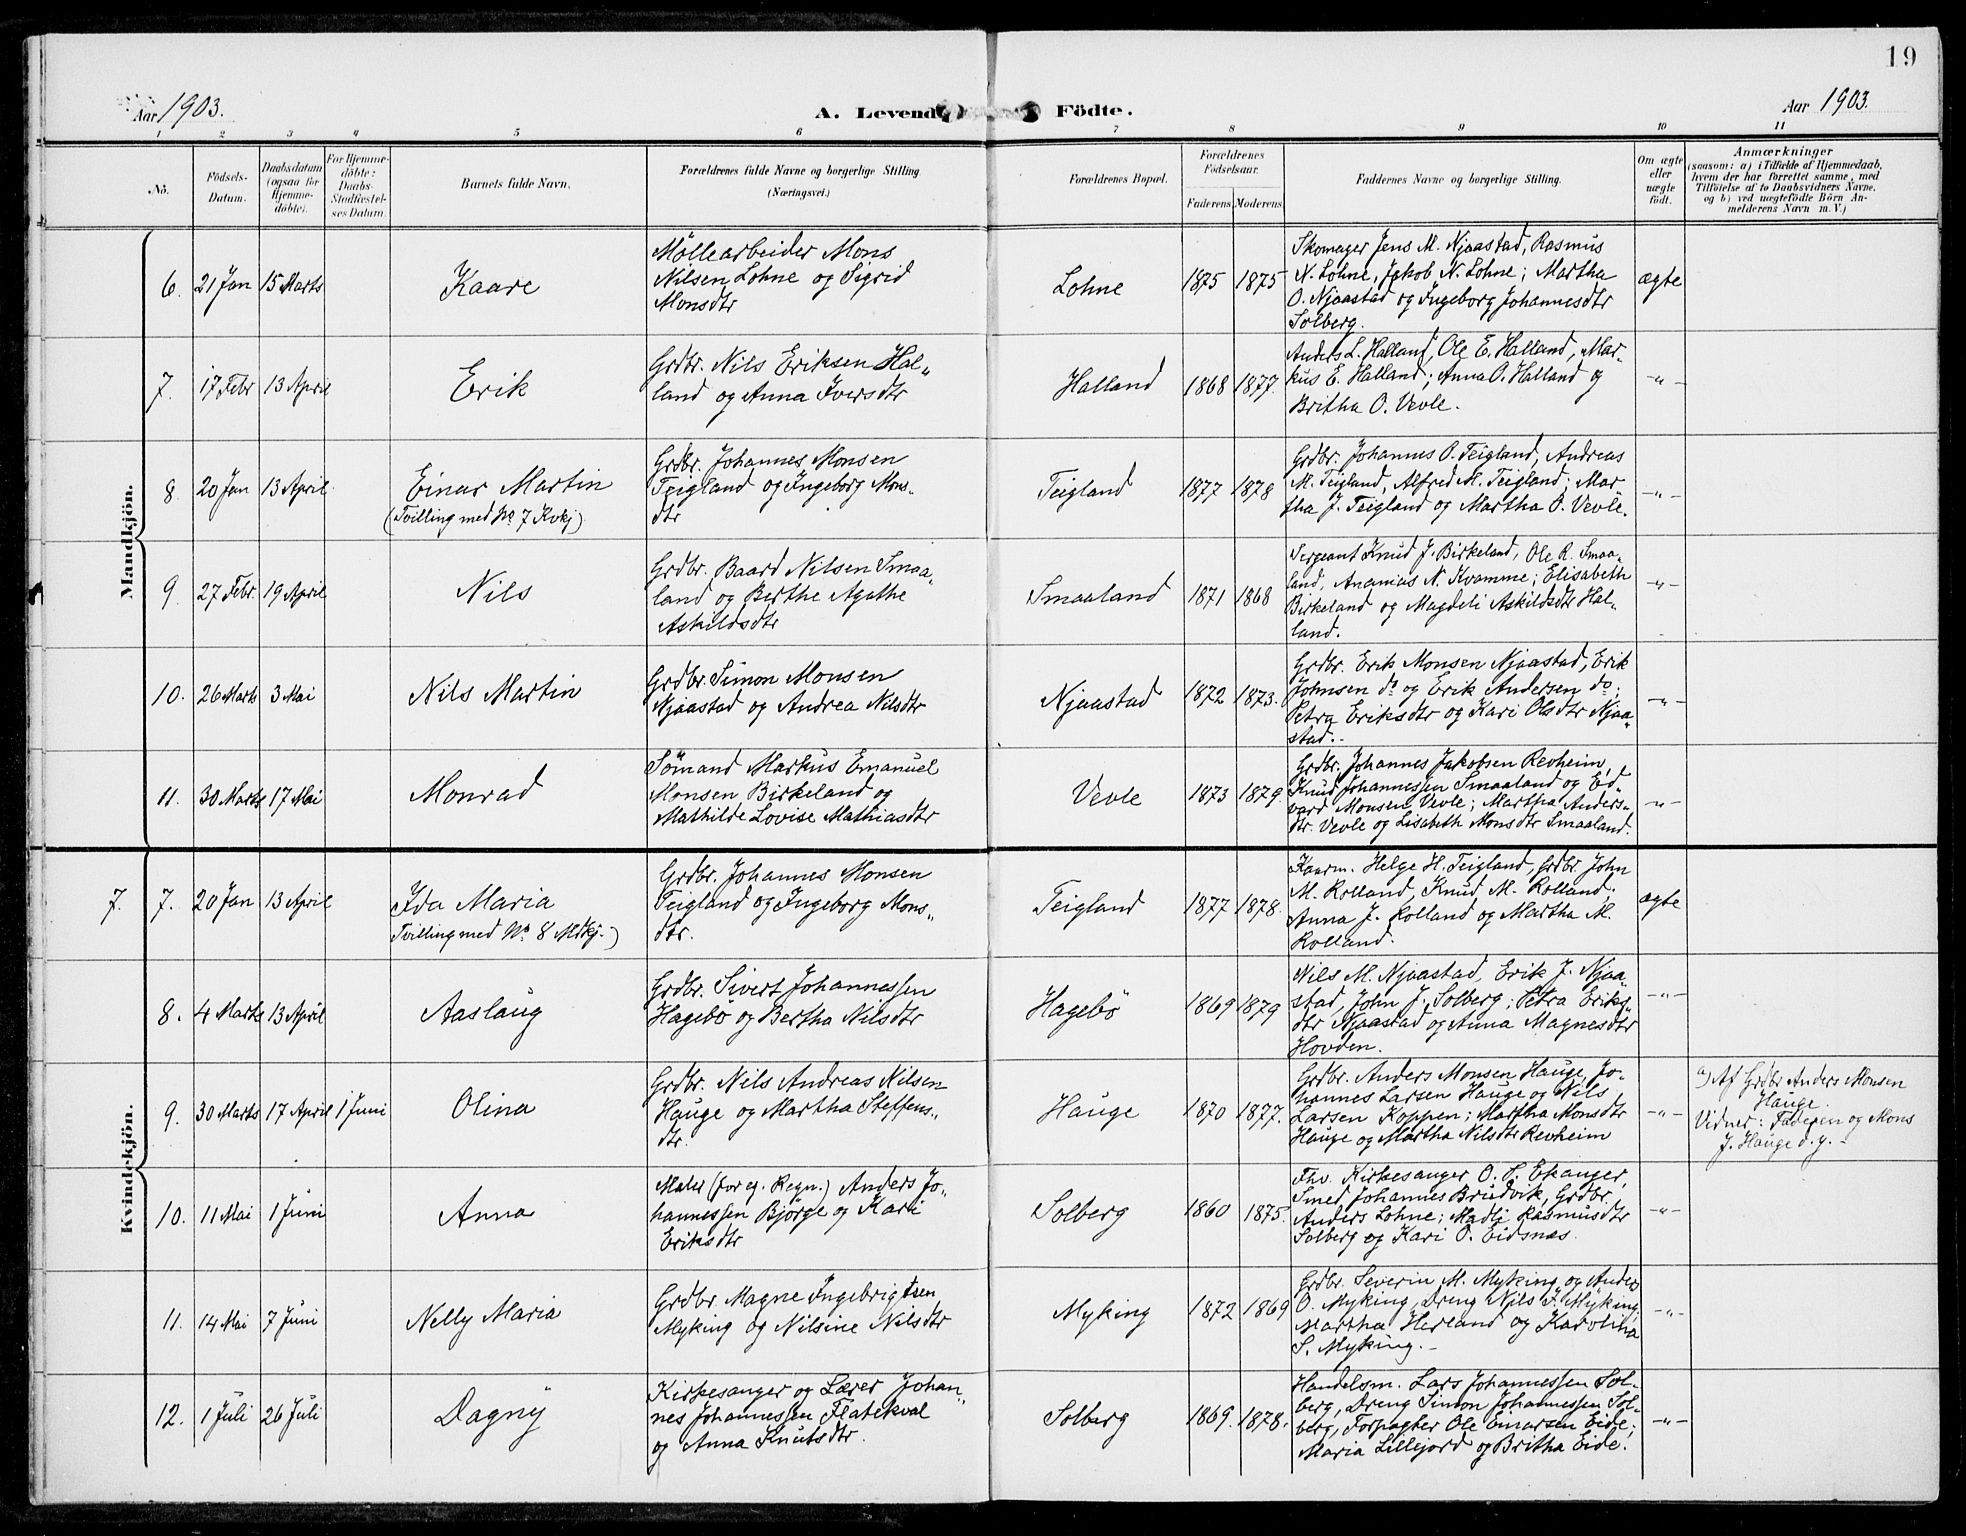 19
Aar 1903.
A. Levende Födte.
Aar 1903.
1 2 3 4 5 6 7 8 9 10 11
No.
Födsels-
Datum.
Daabsdatum
(ogsaa for
Hjemme-
döbte).
For Hjemme-
döbte:
Daabs-
Stadfæstel-
ses Datum.
Barnets fulde Navn.
Forældrenes fulde Navne og borgerlige Stilling
(Næringsvei.)
Forældrenes Bopæl.
Forældrenes
Födselsaar.
Faderens Moderens
Faddernes Navne og borgerlige Stilling.
Om ægte
eller
uægte
födt.
Anmærkninger
(saasom: a) i Tilfælde af Hjemmedaab,
hvem der har forrettet samme, med
Tilföielse af to Daabsvidners Navne,
og b) ved uægtefödte Börn An-
melderens Navn m. V.)
Mandkjön.
6. 21 Jan 15 Marts
Kaare
Möllearbeider Mons
Nilsen Lohne og Sigrid
Monsdtr
Lohne 1875 1875
Skomager Jens M. Njaastad, Rasmus
N. Lohne, Jakob N. Lohne; Martha
O. Njaastad og Ingeborg Johannesdtr
Solberg.
ægte
7. 17 Febr 13 April
Erik
Grdbr. Nils Eriksen Hal„
land og Anna Iversdtr
Halland 1868 1877.
Anders L. Halland, Ole E. Halland, Mar-
kus E. Halland; Anna O. Halland og
Britha O. Vevle.
—„—
8. 20 Jan 13 April
Einar Martin
(Tvilling med No 7 Kvkj)
Grdbr. Johannes Monsen
Teigland og Ingeborg Mons„
dtr
Teigland 1877 1878
Grdbr. Johannes O. Teigland, Andreas
M. Teigland, Alfred M. Teigland; Mar
tha J. Teigland og Martha O. Vevle.
—„—
9. 27 Febr. 19 April
Nils
Grdbr. Baard Nilsen Smaa„
land og Berthe Agathe
Askildsdtr
Smaaland 1871 1868
Sergeant Knud J. Birkeland, Ole R. Smaa„
land, Ananias N. Kvamme; Elisabeth
Birkeland og Magdeli Askildsdtr Hal„
land.
—„—
10. 26 Marts 3 Mai
Nils Martin
Grdbr. Simon Monsen
Njaastad og Andrea Nilsdtr
Njaastad 1872 1873.
Grdbr. Erik Monsen Njaastad, Erik
Johnsen do og Erik Andersen do;
Petra Eriksdtr og Kari Olsdtr Njaa„
stad.-
—„—
11. 30 Marts 17 Mai
Monrad
Sömand Markus Emanuel
Monsen Birkeland og
Mathilde Lovise Mathiasdtr
Vevle 1873 1879.
Grdbr. Johannes Jakobsen Revheim,
Knud Johannessen Smaaland og Ed„
vard Monsen Vevle; Martha Anders„
dtr. Vevle og Lisabeth Monsdtr Smaaland.
—„—
Kvindekjön.
7. 7. 20 Jan 13 April
Ida Maria
Tvilling med No. 8 Mdkj.)
Grdbr. Johannes Monsen
Teigland og Ingeborg Mons„
dtr.
Teigland 1877 1878.
Kaarm. Helge H. Teigland, Grdbr. John
M. Rolland, Knud M. Rolland;
Anna J. Rolland og Martha M.
Rolland.
ægte
8. 4 Marts 13 April
Aaslaug
Grdbr. Sivert Johannessen
Hagebö og Bertha Nilsdtr
Hagebö 1869 1879
Nils M. Njaastad, Erik J. Njaa„
stad, John J. Solberg; Petra Eriks„
dtr Njaastad og Anna Magnesdtr
Hovden.
—„—
9. 30 Marts 17 April 1 Juni
Olina
Grdbr. Nils Andreas Nilsen
Hauge og Martha Steffens„
dtr.
Hauge 1870 1877.
Grdbr. Anders Monsen Hauge, Jo-
hannes Larsen Hauge og Nils
Larsen Koppen; Martha Monsdtr
Hauge og Martha Nilsdtr Revheim
—„—
a) Af Grdbr Anders Monsen
Hauge.
Vidner: Faderen og Mons
J. Hauge d. y. -
10. 11 Mai 1 Juni
Anna
Maler (for eg. Regn.) Anders Jo-
hannessen Björge og Kari
Eriksdtr
Solberg 1860 1875.
Fhv. Kirkesanger O. S. Ekanger,
Smed Johannes Brudvik, Grdbr.
Anders Lohne; Madli Rasmusdtr
Solberg og Kari O. Eidsnæs.
—„—
11. 14 Mai 7 Juni
Nelly Maria
Grdbr. Magne Ingebrigtsen
Myking og Nilsine Nilsdtr
Myking 1872 1869
Grdbr. Severin M. Myking og Anders
O. Myking, Dreng Nils I. Myking;
Martha Herland og Karolina
S. Myking.-
—„—
12. 1 Juli 26 Juli
Dagny
Kirkesanger og Lærer Johan„
nes Johannessen Flatekval
og Anna Knutsdtr.
Solberg 1869. 1878.
Handelsm. Lars Johannessen Sol-
berg, Dreng Simon Johannessen Sol-
berg, Forpagter Ole Einarsen Eide;
Maria Lillejord og Britha Eide.
—„—